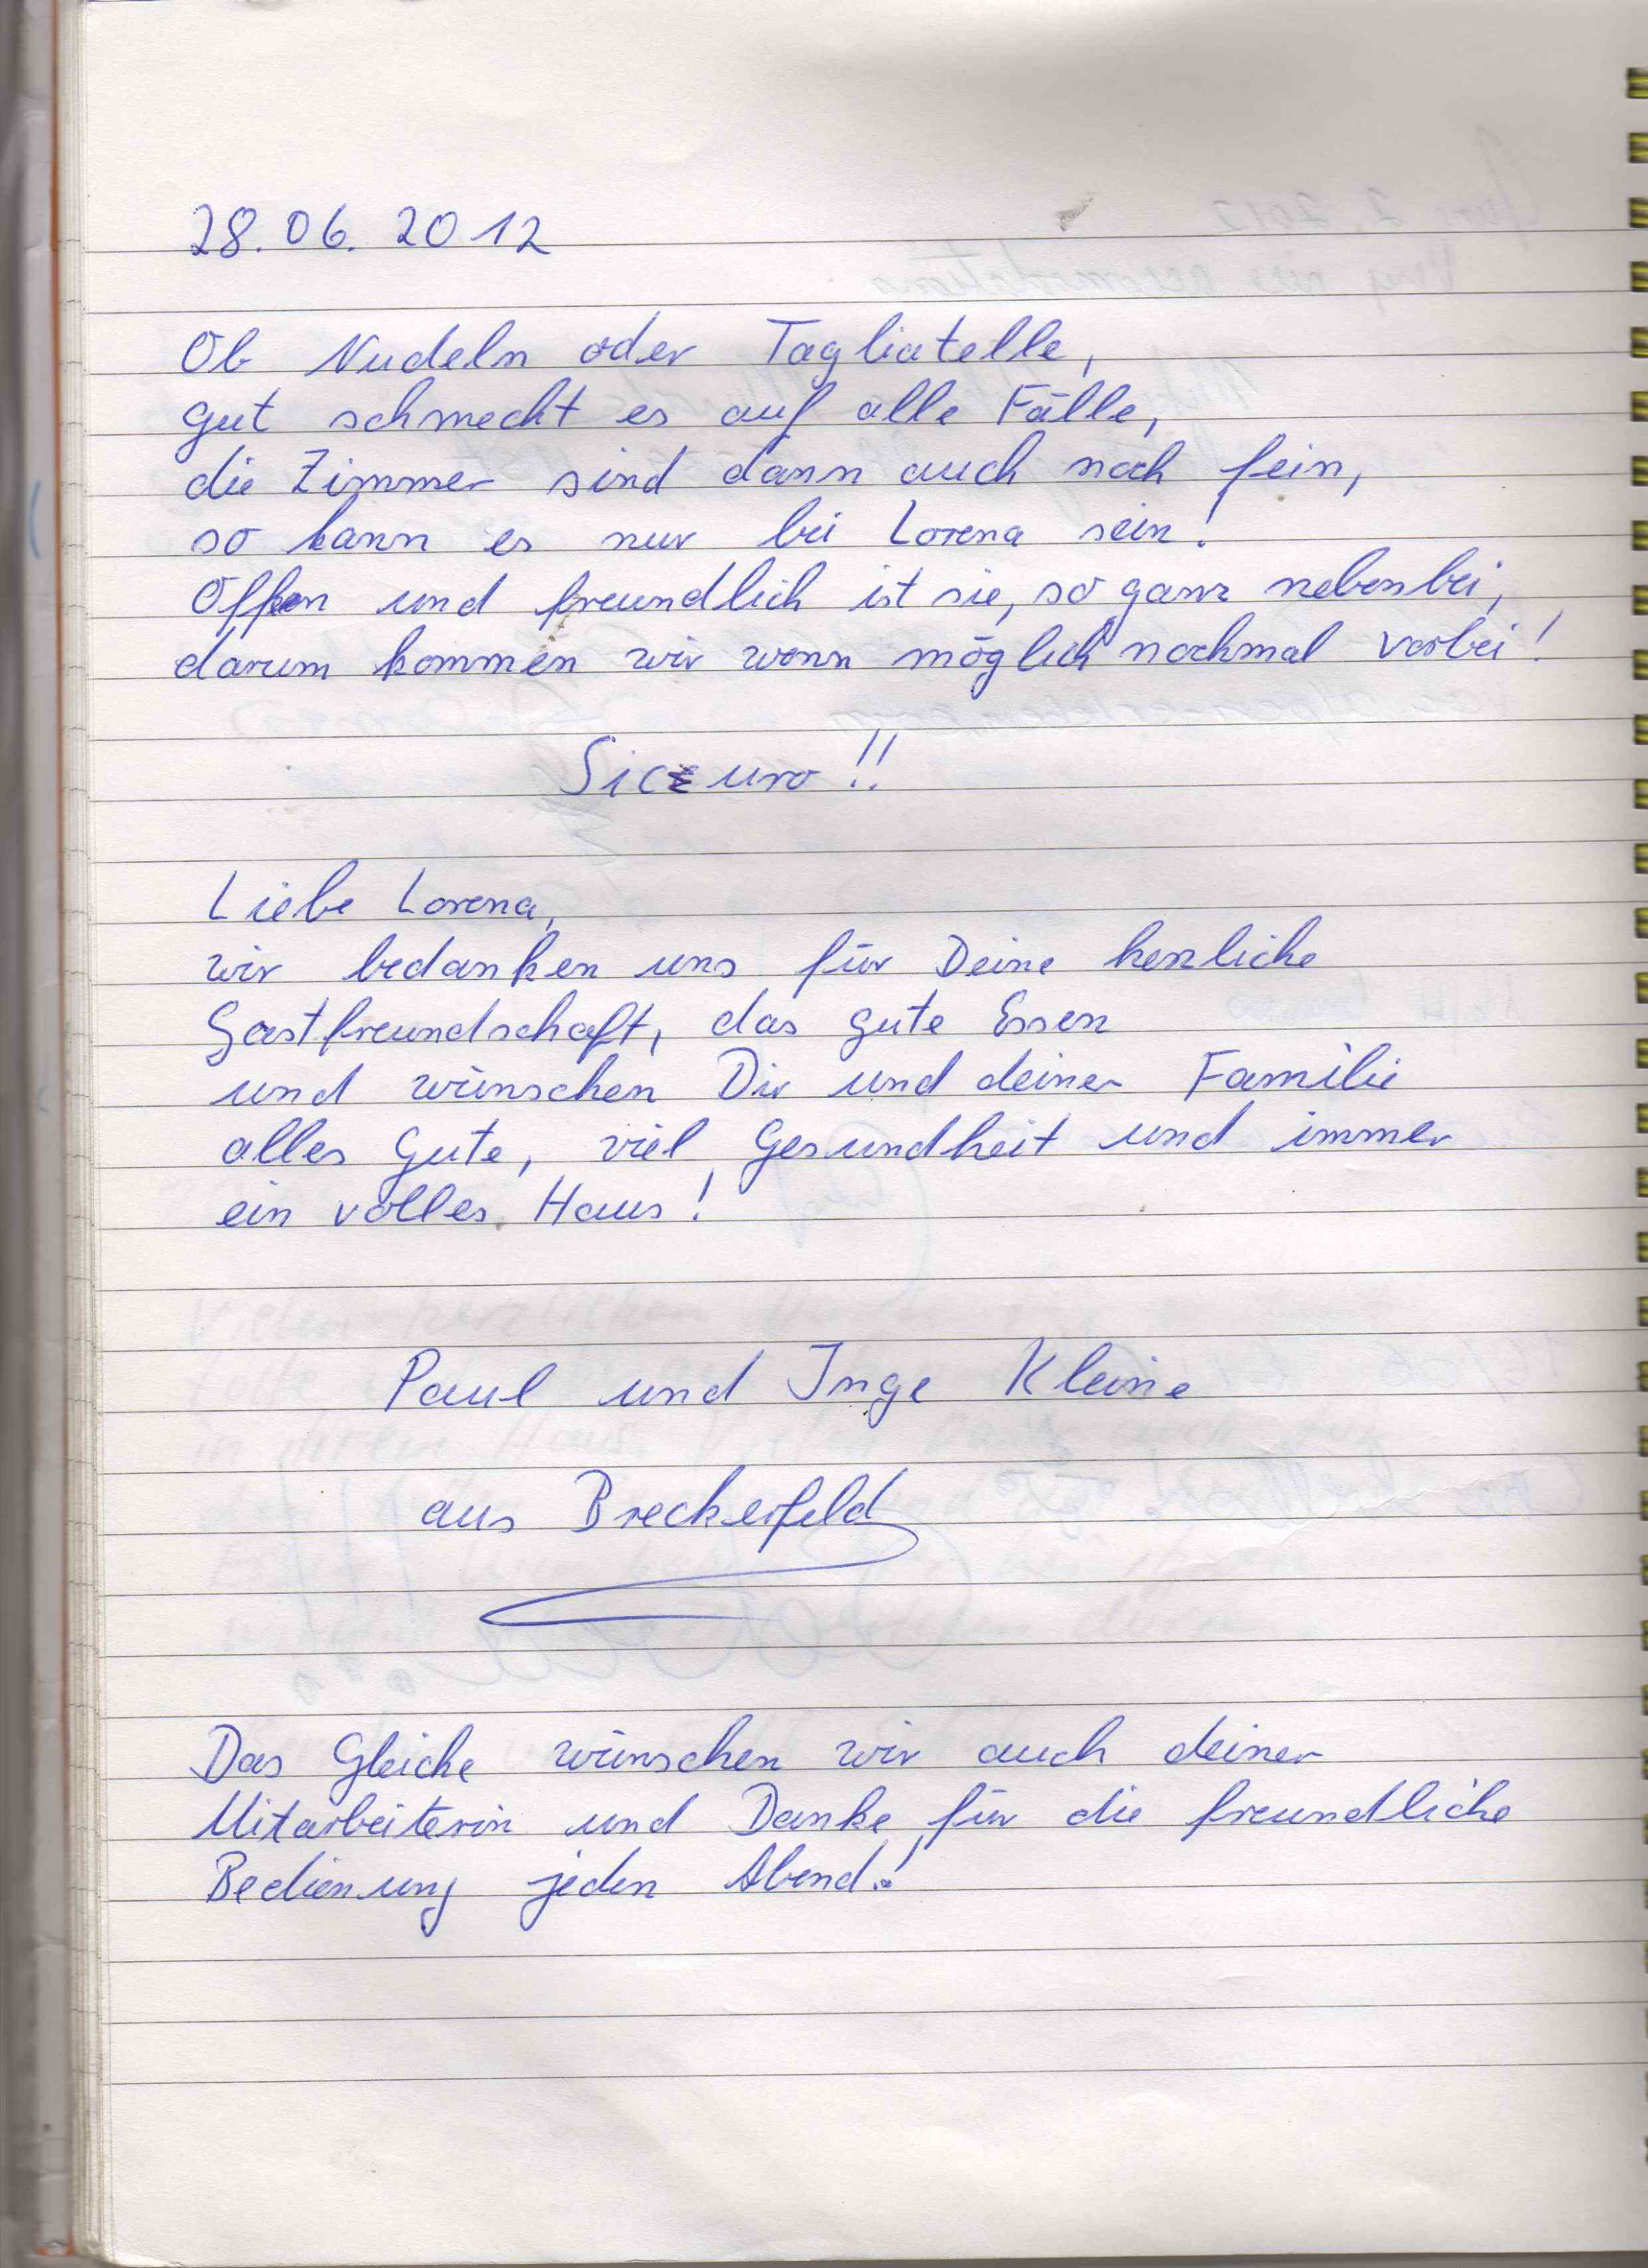 28.06.2012
Ob Nudeln oder Tagliatelle,
gut schmeckt es auf alle Fälle,
die Zimmer sind dann auch noch fein,
so kann es nur bei Lorena sein!
Offen und freundlich ist sie, so ganz nebenbei,
darum kommen wir wenn möglich nochmal vorbei!
Sicuro!!
Liebe Lorena,
wir bedanken uns für Deine herzliche
Gastfreundschaft, das gute Essen
und wünschen Dir und deiner Familie
alles Gute, viel Gesundheit und immer
ein volles Haus!
Paul und Inge Kleine
aus Breckerfeld
Das Gleiche wünschen wir auch deiner
Mitarbeiterin und Danke für die freundliche
Bedienung jeden Abend!